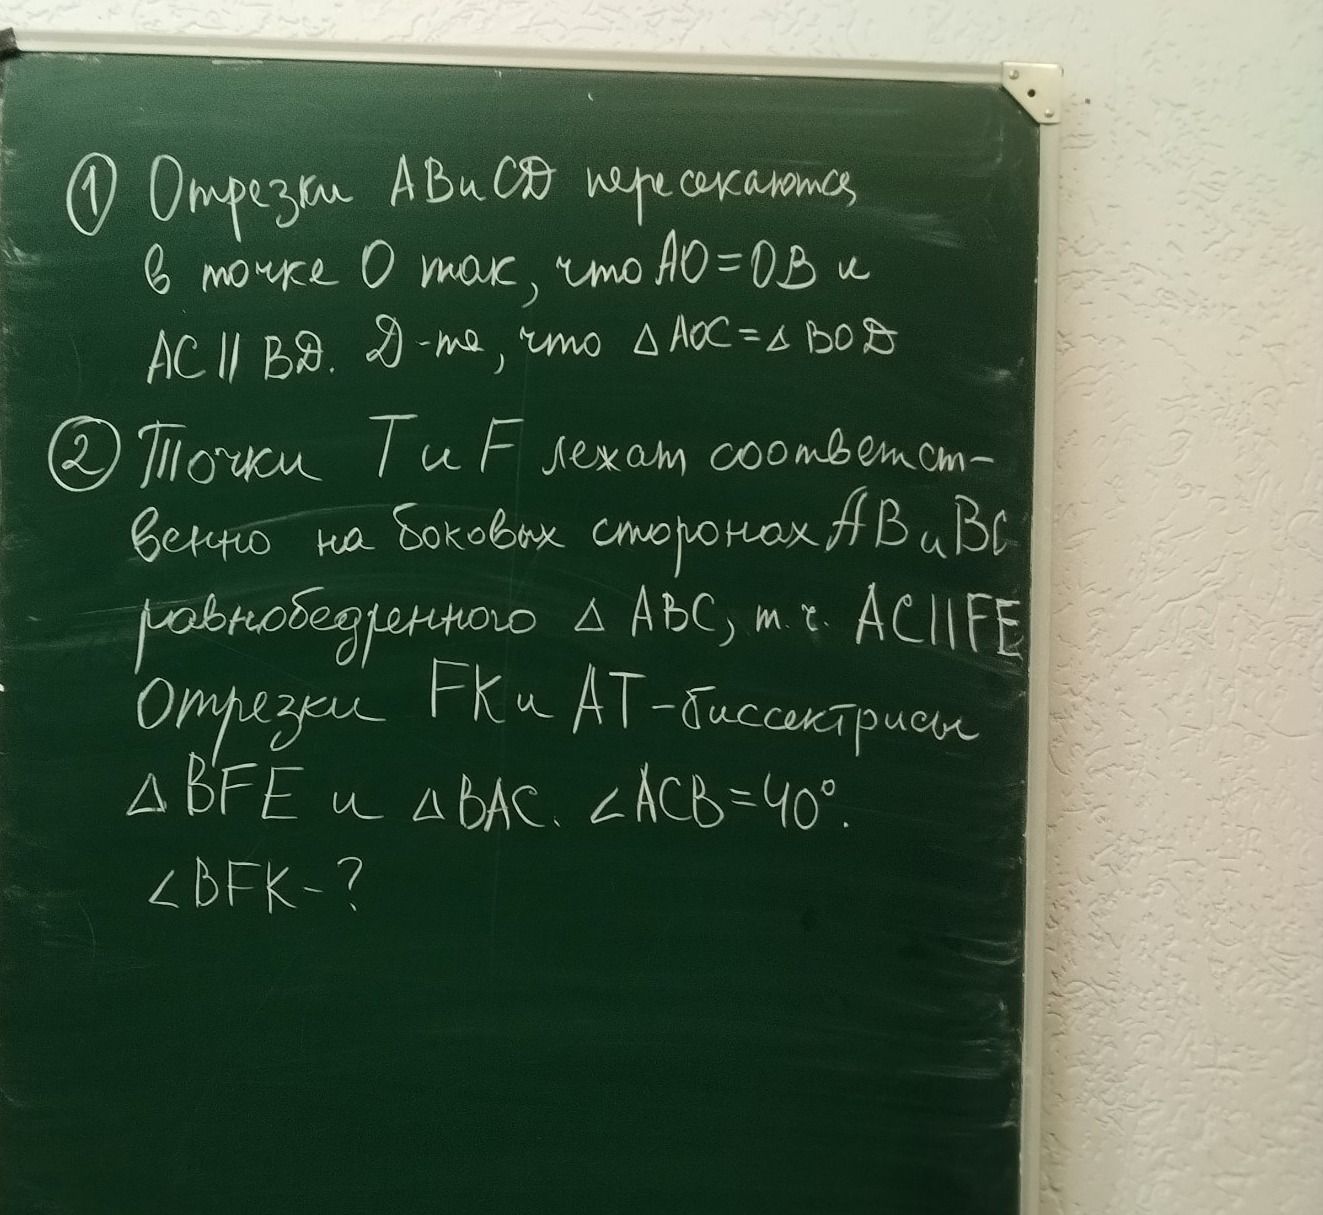 ① Отрезки AB и CD пересекаются
в точке O так, что AO=OB и
AC || BD. Д-те, что △AOC=△BOD
② Точки T и F лежат соответст-
венно на боковых сторонах AB и BC
равнобедренного △ ABC, т.ч. AC||FE
Отрезки FK и AT-биссектрисы
△BFE и △BAC. ∠ACB=40°.
∠BFK-?